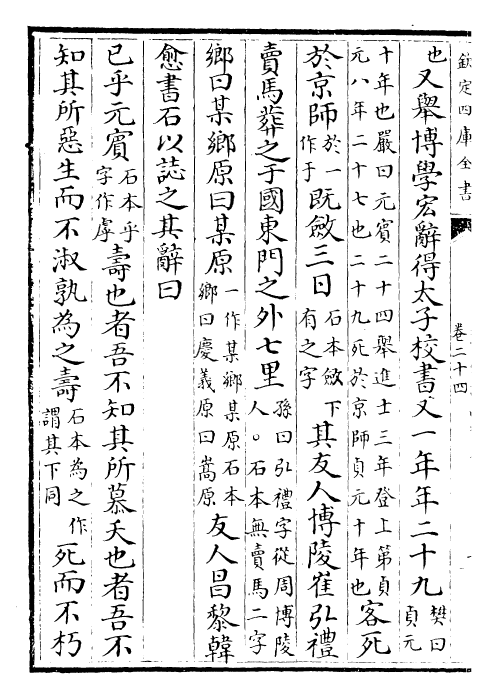 欽定四庫全書
卷二十四
也又舉博學宏辭得太子校書又一年年二十九樊曰貞元
十年也嚴曰元賓二十四舉進士三年登上第貞元八年二十七也二十九死於京師貞元十年也客死
於京師於一作于既斂三日石本斂下有之字其友人博陵崔弘禮
賣馬葬之于國東門之外七里孫曰弘禮字從周博陵人。石本無賣馬二字
鄉曰某鄉原曰某原一作某鄉某原石本鄉曰慶義原曰嵩原友人昌黎韓
愈書石以誌之其辭曰
已乎元賓石本乎字作虖壽也者吾不知其所慕夭也者吾不
知其所惡生而不淑孰為之壽石本為之作謂其下同死而不朽